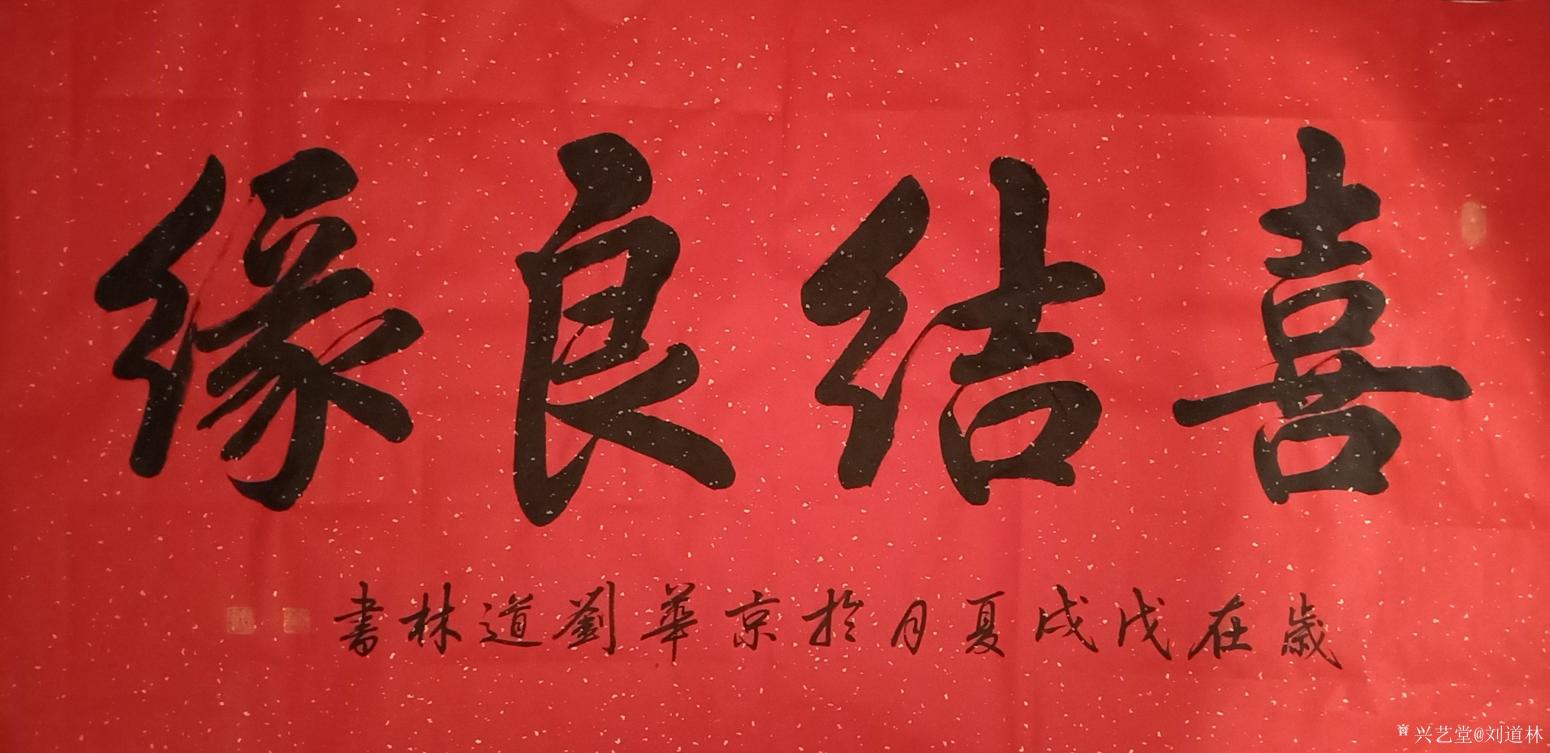 喜结良缘
歲在戊戌夏月於京華劉道林書
兴艺堂@刘道林